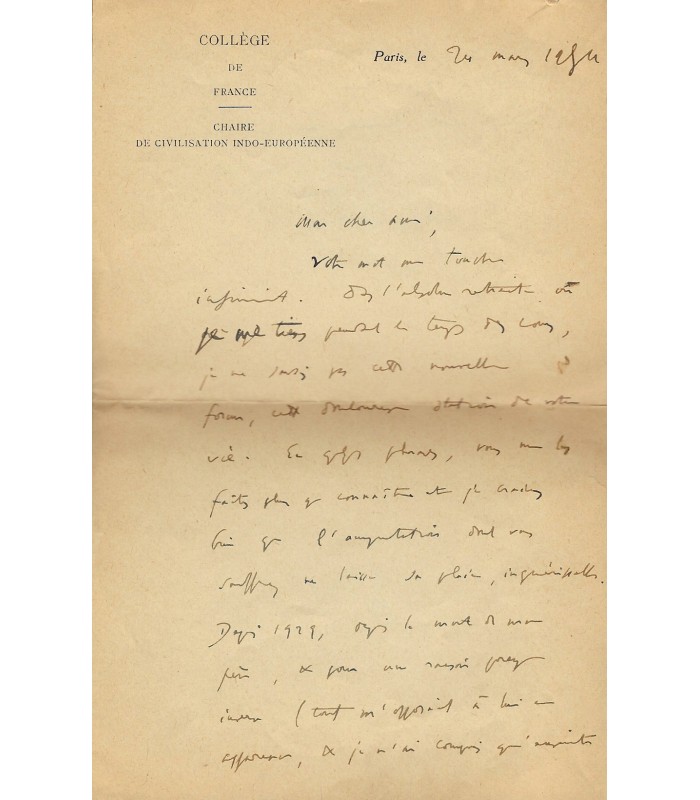 COLLÈGE
DE
FRANCE
CHAIRE
DE CIVILISATION INDO-EUROPÉENNE
Paris, le 24 mars 1954
Mon cher ami,
Votre mot me touche
infiniment. Ds l'absolue retraite où
je me tiens pendant le temps des cours,
je ne savais pas cette nouvelle
forme, cette douloureuse station de votre
vie. En qlqs phrases, vous me les
faites plus q connaître et je crains
bien que l'amputation dont vous
souffrez ne laisse sa plaie, inguérissable.
Depuis 1929, depuis la mort de mon
père, & pour une raison presque
inverse (tout m'opposait à lui en
apparence, & je n'ai compris qu'ensuite